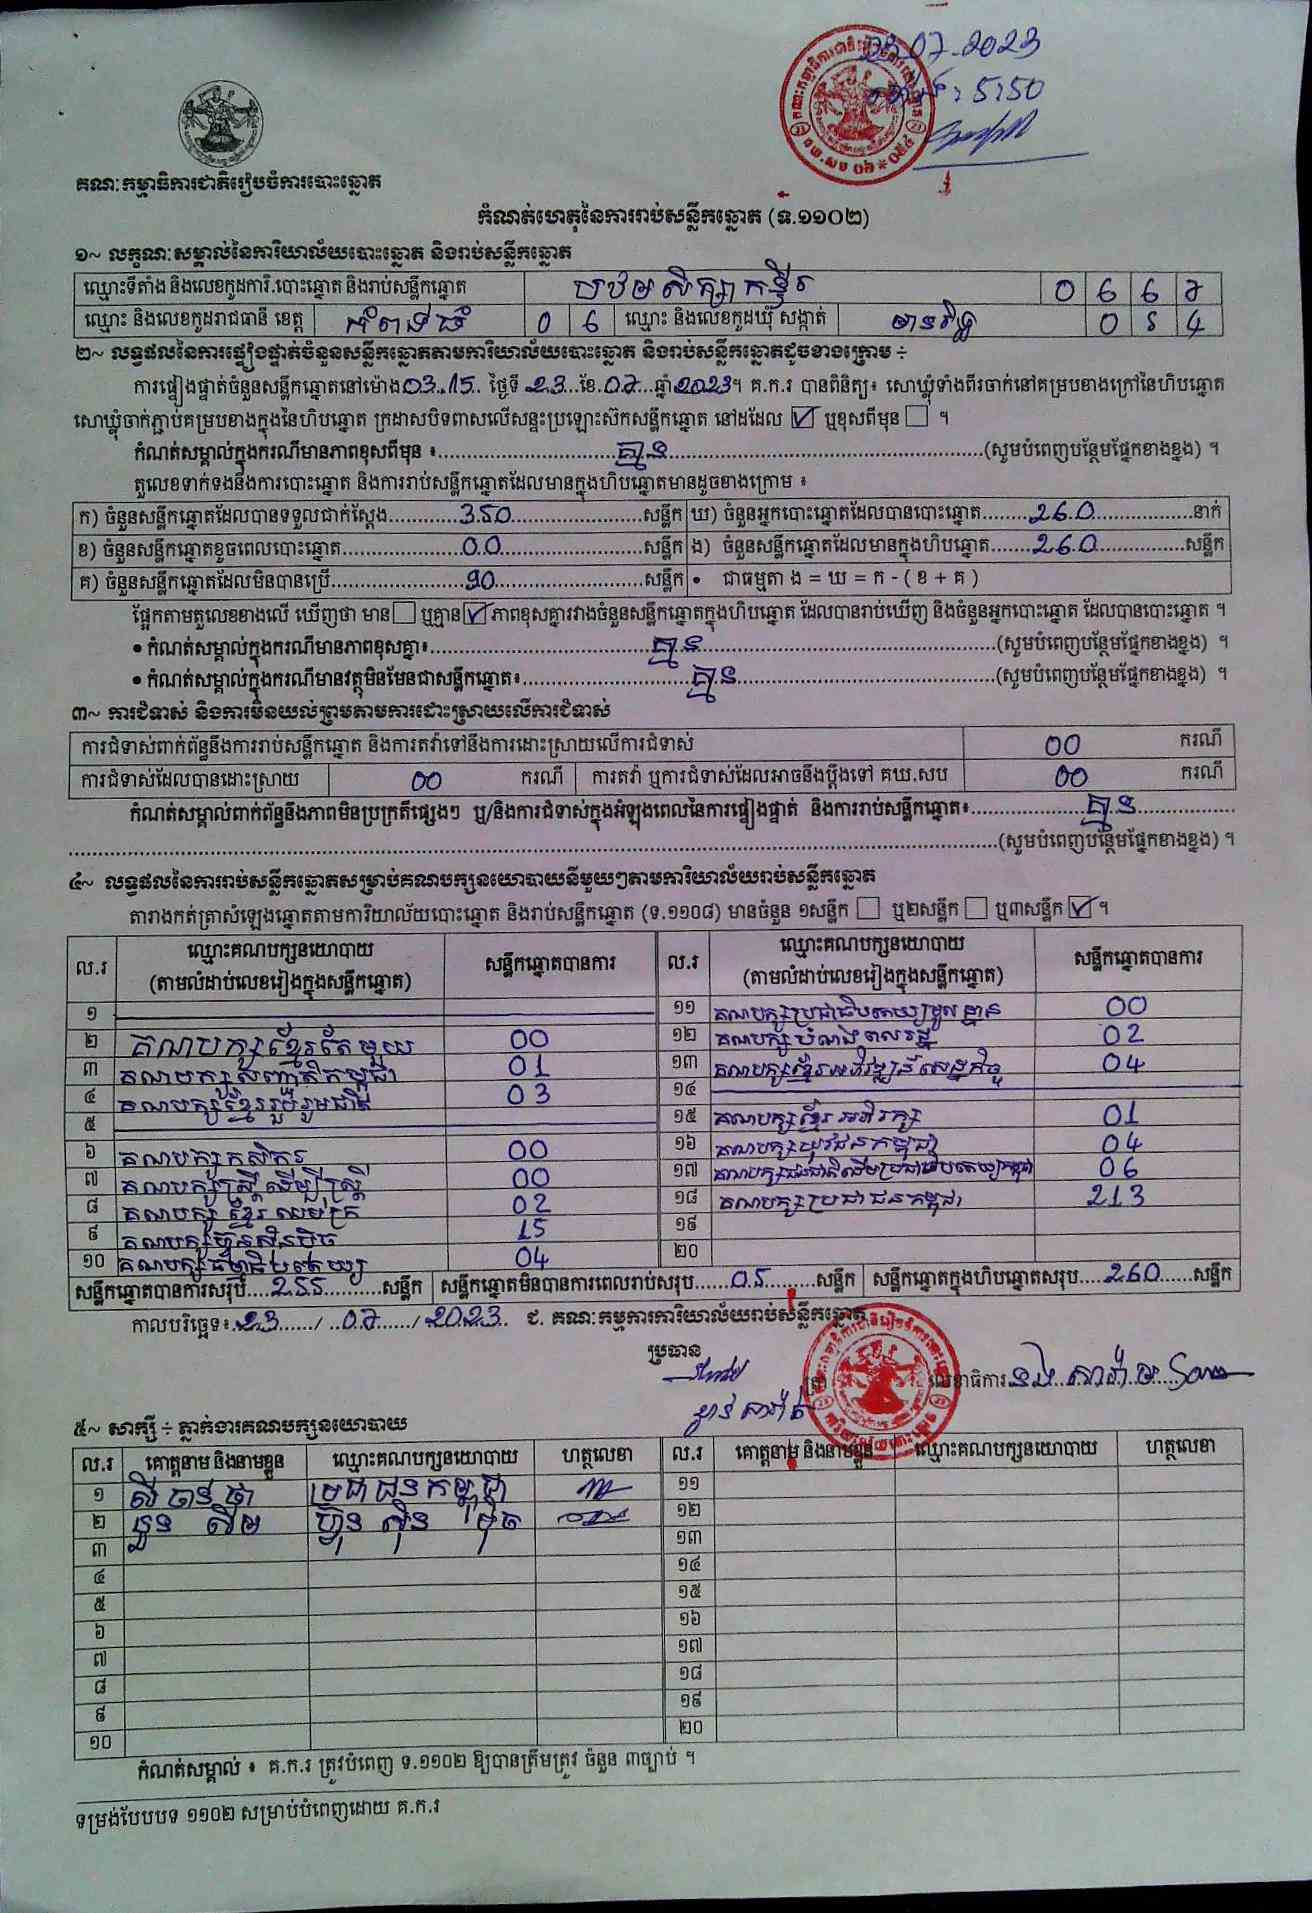 07-2023
5:50
គណៈកម្មាធិការជាតិរៀបចំការបោះឆ្នោត
កំណត់ហេតុនៃការរាប់សន្លឹកឆ្នោត (ទ.១១០២)
១~ លក្ខណៈសម្គាល់នៃការិយាល័យបោះឆ្នោត និងរាប់សន្លឹកឆ្នោត
ឈ្មោះទីតាំង និងលេខកូដការិ.បោះឆ្នោត និងរាប់សន្លឹកឆ្នោត បឋមសិក្សា 0 6 6 7
ឈ្មោះ និងលេខកូដរាជធានី ខេត្ត កំពង់ធំ 0 6 ឈ្មោះ និងលេខកូដឃុំ សង្កាត់ មានរិទ្ធ 0 5 4
២~ លទ្ធផលនៃការផ្ទៀងផ្ទាត់ចំនួនសន្លឹកឆ្នោតតាមការិយាល័យបោះឆ្នោត និងរាប់សន្លឹកឆ្នោតដូចខាងក្រោម ÷
ការផ្ទៀងផ្ទាត់ចំនួនសន្លឹកឆ្នោតនៅម៉ោង 03:15 ថ្ងៃទី 23 ខែ 07 ឆ្នាំ 2023។ គ.ក.រ បានពិនិត្យ៖ សោឃ្លុំទាំងពីរចាក់នៅគម្របខាងក្រៅនៃហិបឆ្នោត
សោឃ្លុំចាក់ភ្ជាប់គម្របខាងក្នុងនៃហិបឆ្នោត ក្រដាសបិទពាសលើសន្ទះប្រឡោះស៊កសន្លឹកឆ្នោត នៅដដែល ☑ ឬខុសពីមុន ☐ ។
កំណត់សម្គាល់ក្នុងករណីមានភាពខុសពីមុន ៖ គ្មាន (សូមបំពេញបន្ថែមផ្នែកខាងខ្នង) ។
តួលេខទាក់ទងនឹងការបោះឆ្នោត និងការរាប់សន្លឹកឆ្នោតដែលមានក្នុងហិបឆ្នោតមានដូចខាងក្រោម ៖
ក) ចំនួនសន្លឹកឆ្នោតដែលបានទទួលជាក់ស្តែង 350 សន្លឹក ឃ) ចំនួនអ្នកបោះឆ្នោតដែលបានបោះឆ្នោត 260 នាក់
ខ) ចំនួនសន្លឹកឆ្នោតខូចពេលបោះឆ្នោត 00 សន្លឹក ង) ចំនួនសន្លឹកឆ្នោតដែលមានក្នុងហិបឆ្នោត 260 សន្លឹក
គ) ចំនួនសន្លឹកឆ្នោតដែលមិនបានប្រើ 90 សន្លឹក • ជាធម្មតា ង = ឃ = ក - ( ខ + គ )
ផ្អែកតាមតួលេខខាងលើ ឃើញថា មាន ☐ ឬគ្មាន ☑ ភាពខុសគ្នារវាងចំនួនសន្លឹកឆ្នោតក្នុងហិបឆ្នោត ដែលបានរាប់ឃើញ និងចំនួនអ្នកបោះឆ្នោត ដែលបានបោះឆ្នោត ។
• កំណត់សម្គាល់ក្នុងករណីមានភាពខុសគ្នា៖ គ្មាន (សូមបំពេញបន្ថែមផ្នែកខាងខ្នង) ។
• កំណត់សម្គាល់ក្នុងករណីមានវត្ថុមិនមែនជាសន្លឹកឆ្នោត៖ គ្មាន (សូមបំពេញបន្ថែមផ្នែកខាងខ្នង) ។
៣~ ការជំទាស់ និងការមិនយល់ព្រមតាមការដោះស្រាយលើការជំទាស់
ការជំទាស់ពាក់ព័ន្ធនឹងការរាប់សន្លឹកឆ្នោត និងការតវ៉ាទៅនឹងការដោះស្រាយលើការជំទាស់ 00 ករណី
ការជំទាស់ដែលបានដោះស្រាយ 00 ករណី ការតវ៉ា ឬការជំទាស់ដែលអាចនឹងប្តឹងទៅ គឃ.សប 00 ករណី
កំណត់សម្គាល់ពាក់ព័ន្ធនឹងភាពមិនប្រក្រតីផ្សេងៗ ឬ/និងការជំទាស់ក្នុងអំឡុងពេលនៃការផ្ទៀងផ្ទាត់ និងការរាប់សន្លឹកឆ្នោត៖ គ្មាន
(សូមបំពេញបន្ថែមផ្នែកខាងខ្នង) ។
៤~ លទ្ធផលនៃការរាប់សន្លឹកឆ្នោតសម្រាប់គណបក្សនយោបាយនីមួយៗតាមការិយាល័យរាប់សន្លឹកឆ្នោត
តារាងកត់ត្រាសំឡេងឆ្នោតតាមការិយាល័យបោះឆ្នោត និងរាប់សន្លឹកឆ្នោត (ទ.១១០៨) មានចំនួន ១សន្លឹក ☐ ឬ២សន្លឹក ☐ ឬ៣សន្លឹក ☑ ។
ល.រ ឈ្មោះគណបក្សនយោបាយ (តាមលំដាប់លេខរៀងក្នុងសន្លឹកឆ្នោត) សន្លឹកឆ្នោតបានការ ល.រ ឈ្មោះគណបក្សនយោបាយ (តាមលំដាប់លេខរៀងក្នុងសន្លឹកឆ្នោត) សន្លឹកឆ្នោតបានការ
១ ១១ គណបក្សប្រជាធិបតេយ្យមូលដ្ឋាន 00
២ គណបក្សខ្មែរតែមួយ 00 ១២ គណបក្សបំណងពលរដ្ឋ 02
៣ គណបក្សសញ្ជាតិកម្ពុជា 01 ១៣ គណបក្សខ្មែរអភិវឌ្ឍន៍សេដ្ឋកិច្ច 04
៤ គណបក្សខ្មែររួបរួមជាតិ 03 ១៤
៥ ១៥ គណបក្សខ្មែរអភិរក្ស 01
៦ គណបក្សកសិករ 00 ១៦ គណបក្សយុវជនកម្ពុជា 04
៧ គណបក្សស្ត្រីដើម្បីស្ត្រី 00 ១៧ គណបក្សជនជាតិដើមប្រជាធិបតេយ្យកម្ពុជា 06
៨ គណបក្សខ្មែរឈប់ក្រ 02 ១៨ គណបក្សប្រជាជនកម្ពុជា 213
៩ គណបក្សហ្វ៊ុនស៊ិនប៉ិច 15 ១៩
១០ គណបក្សធម្មាធិបតេយ្យ 04 ២០
សន្លឹកឆ្នោតបានការសរុប 255 សន្លឹក សន្លឹកឆ្នោតមិនបានការពេលរាប់សរុប 05 សន្លឹក សន្លឹកឆ្នោតក្នុងហិបឆ្នោតសរុប 260 សន្លឹក
កាលបរិច្ឆេទ៖ 23 / 07 / 2023 ជ. គណៈកម្មការការិយាល័យរាប់សន្លឹកឆ្នោត
ប្រធាន
លេខាធិការ
៥~ សាក្សី ÷ ភ្នាក់ងារគណបក្សនយោបាយ
ល.រ គោត្តនាម និងនាមខ្លួន ឈ្មោះគណបក្សនយោបាយ ហត្ថលេខា ល.រ គោត្តនាម និងនាមខ្លួន ឈ្មោះគណបក្សនយោបាយ ហត្ថលេខា
១ ប្រជាជនកម្ពុជា ១១
២ ហ៊្វុន ស៊ិន ប៉ិច ១២
៣ ១៣
៤ ១៤
៥ ១៥
៦ ១៦
៧ ១៧
៨ ១៨
៩ ១៩
១០ ២០
កំណត់សម្គាល់ ៖ គ.ក.រ ត្រូវបំពេញ ទ.១១០២ ឱ្យបានត្រឹមត្រូវ ចំនួន ៣ច្បាប់ ។
ទម្រង់បែបបទ ១១០២ សម្រាប់បំពេញដោយ គ.ក.រ